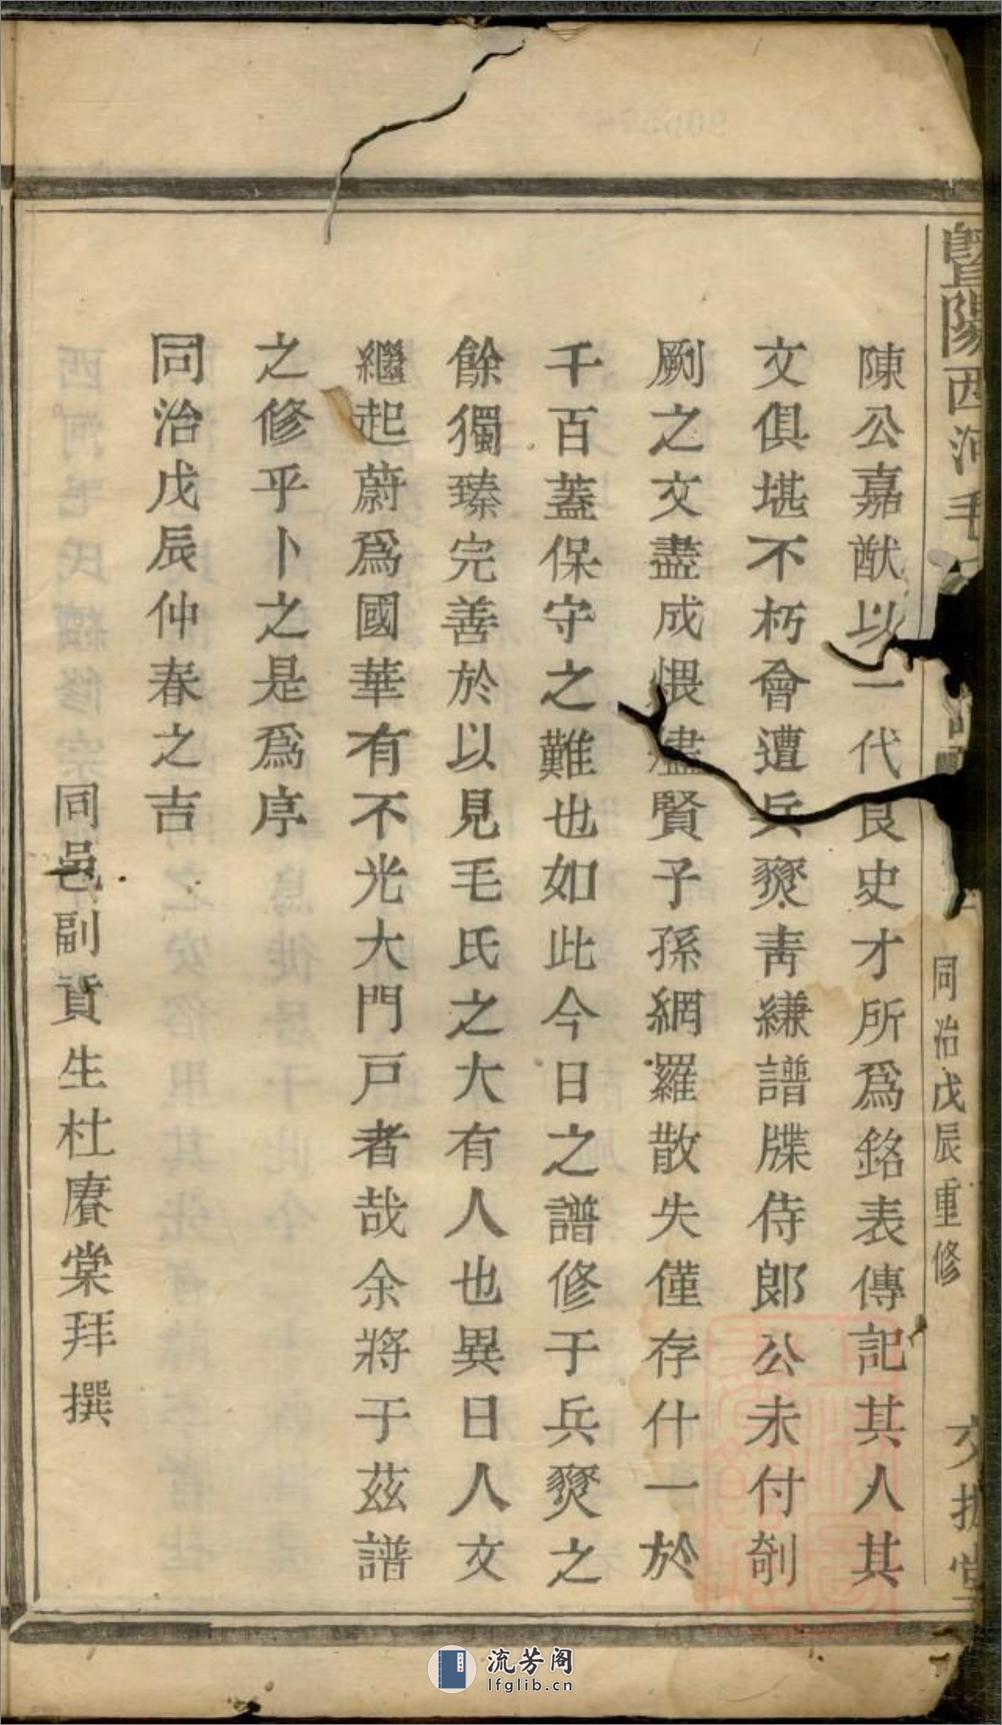 暨陽西河毛
同治戊辰重修
陳公嘉猷以一代良史才所爲銘表傳記其人其
文俱堪不朽會遭兵燹靑縑譜牒侍郎公未付剞
劂之文盡成煨燼賢子孫網羅散失僅存什一於
千百蓋保守之難也如此今日之譜修于兵燹之
餘獨臻完善於以見毛氏之大有人也異日人文
繼起蔚爲國華有不光大門戸者哉余將于茲譜
之修乎卜之是爲序
同治戊辰仲春之吉
同邑副貢生杜賡棠拜撰
流芳阁
lfglib.cn